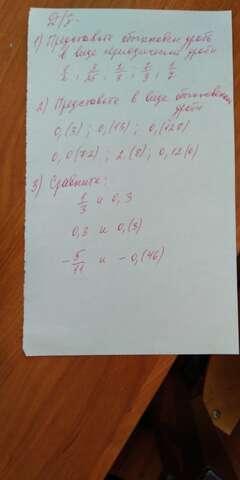 Д/з.
1) Представьте обыкновен. дробь
в виде периодической дроби
1/3 ; 1/7
2) Представьте в виде обыкновенной
дроби
0,(3) ; 0,(13) ; 0,(120)
0,0(72) ; 2,(8) ; 0,12(0)
3) Сравните:
1/3 и 0,3
0,3 и 0,(3)
- 5/11 и - 0,(46)